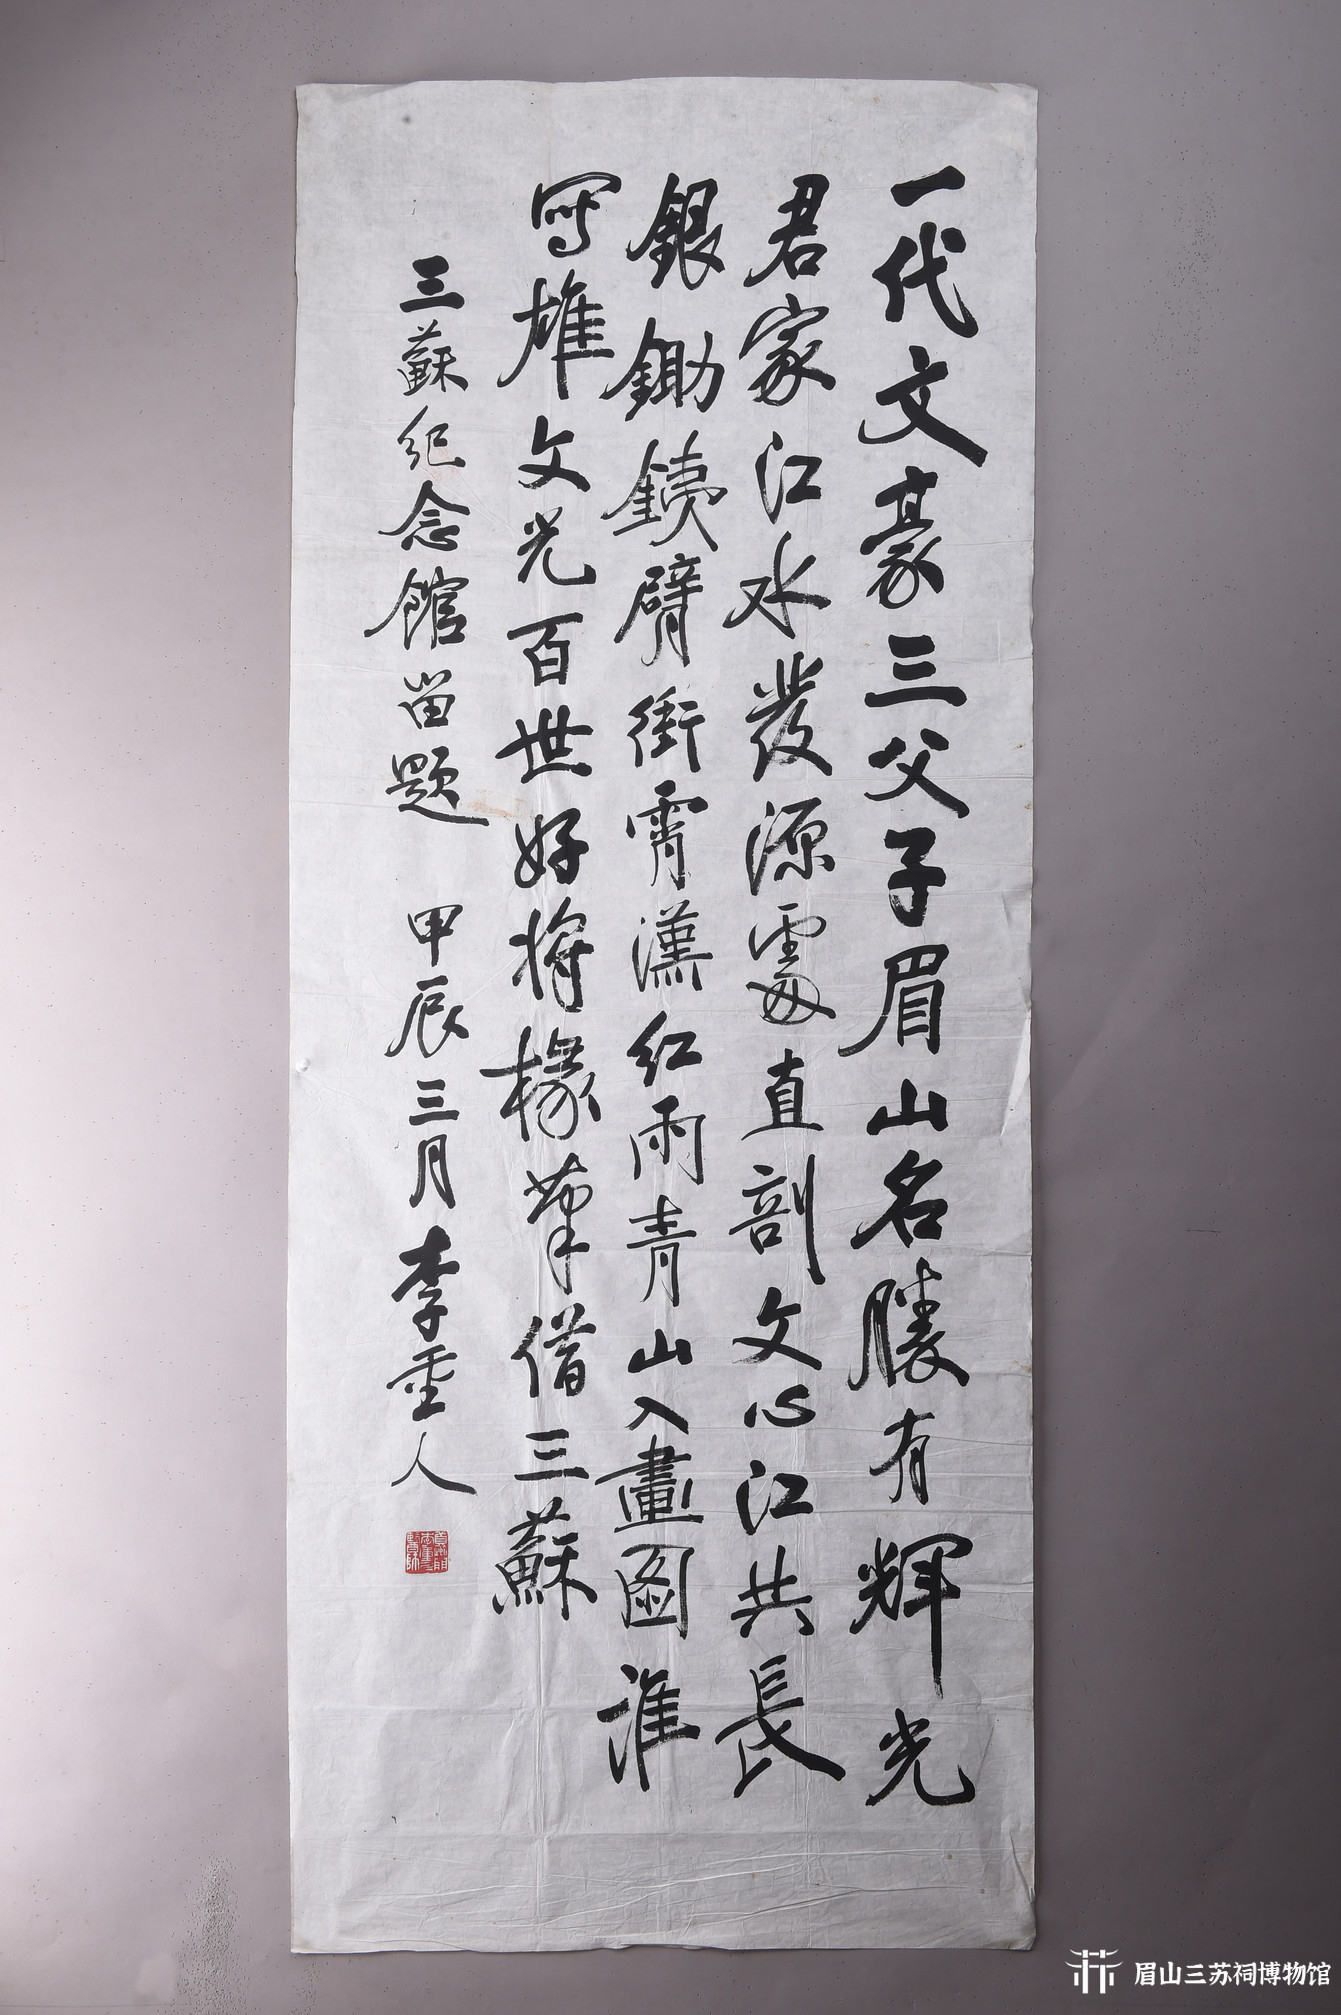 一代文豪三父子眉山名勝有輝光
君家江水發源處直剖文心江共長
銀鋤鐵臂衝霄漢紅雨青山入畫圖誰
寫雄文光百世好將椽筆借三蘇
三蘇紀念館留題 甲辰三月李重人
眉山三苏祠博物馆